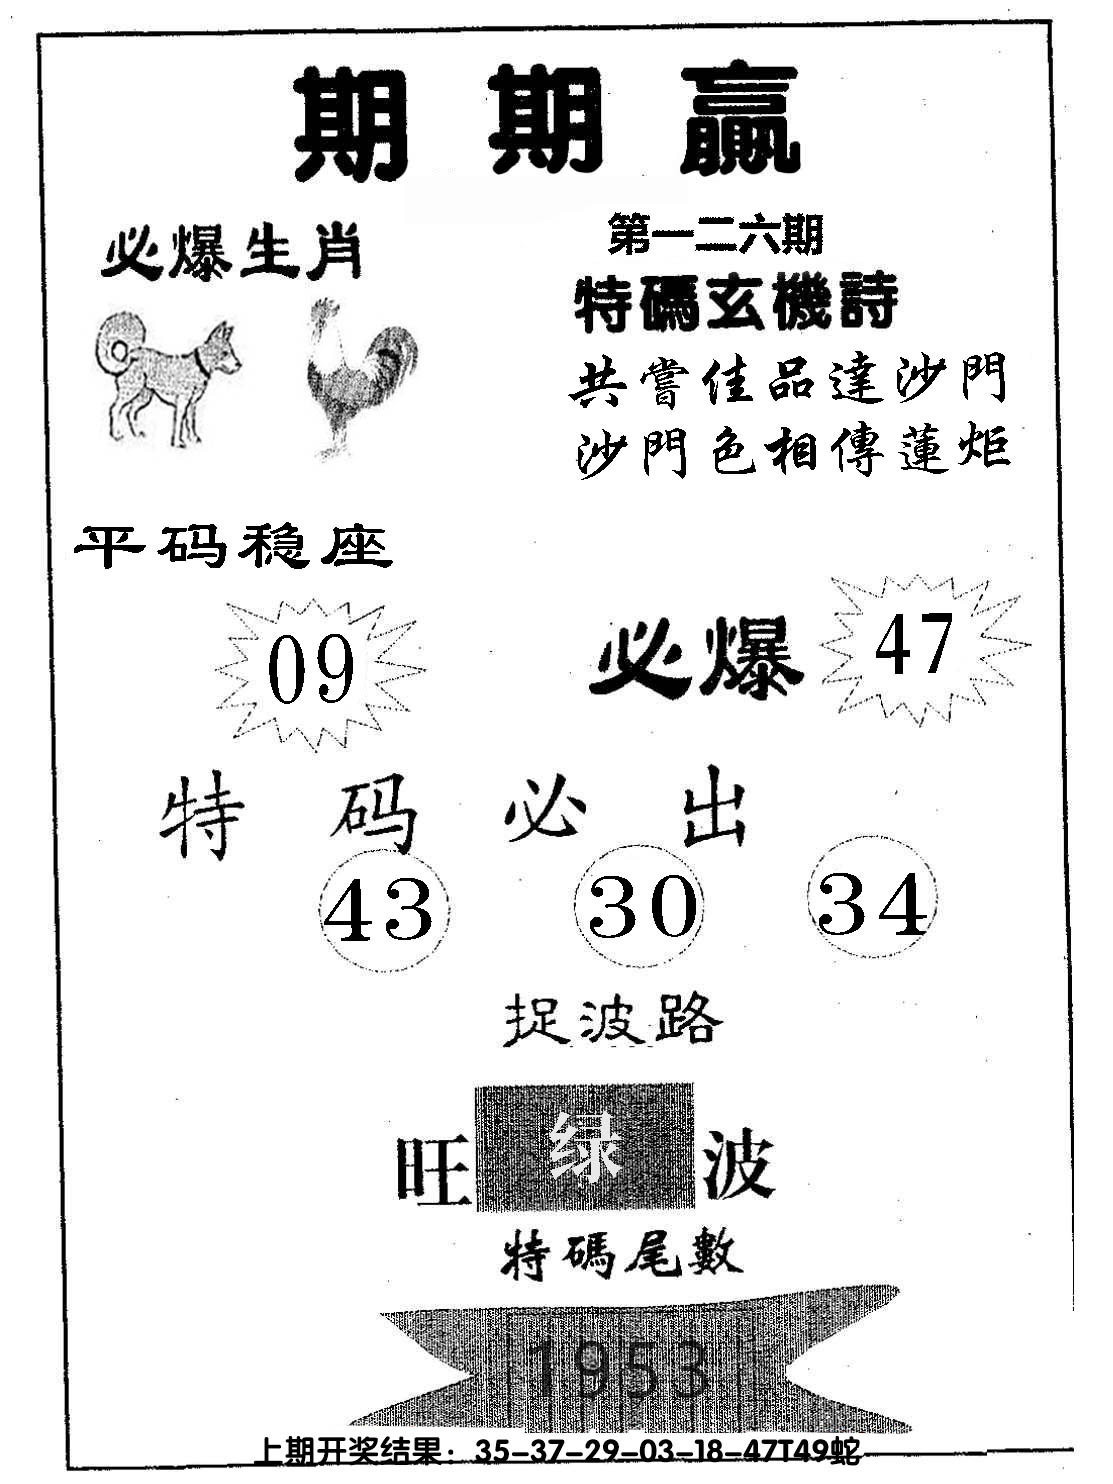 期期赢
必爆生肖
第一二六期
特碼玄機詩
共嘗佳品達沙門
沙門色相傳蓮炬
平码稳座
09
必爆
47
特码必出
43 30 34
捉波路
旺绿波
特碼尾數
1953
上期开奖结果：35-37-29-03-18-47T49蛇